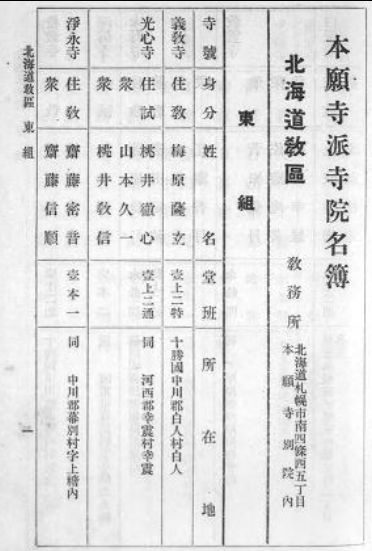 本願寺派寺院名簿
北海道教區
教務所
北海道札幌市南四條西五丁目
本願寺別院内
東組
寺號 身分 姓名 堂班 所在地
義敎寺 住敎 梅原薩立 壹上二特 十勝國中川郡白人村白人
光心寺 住試 桃井徹心 壹上二通 同 河西郡幸震村幸震
衆 山本久一
衆 桃井敎信
淨永寺 住敎 齋藤密音 壹本一 同 中川郡幕別村字上糠内
衆 齋藤信順
北海道敎區 東組
一